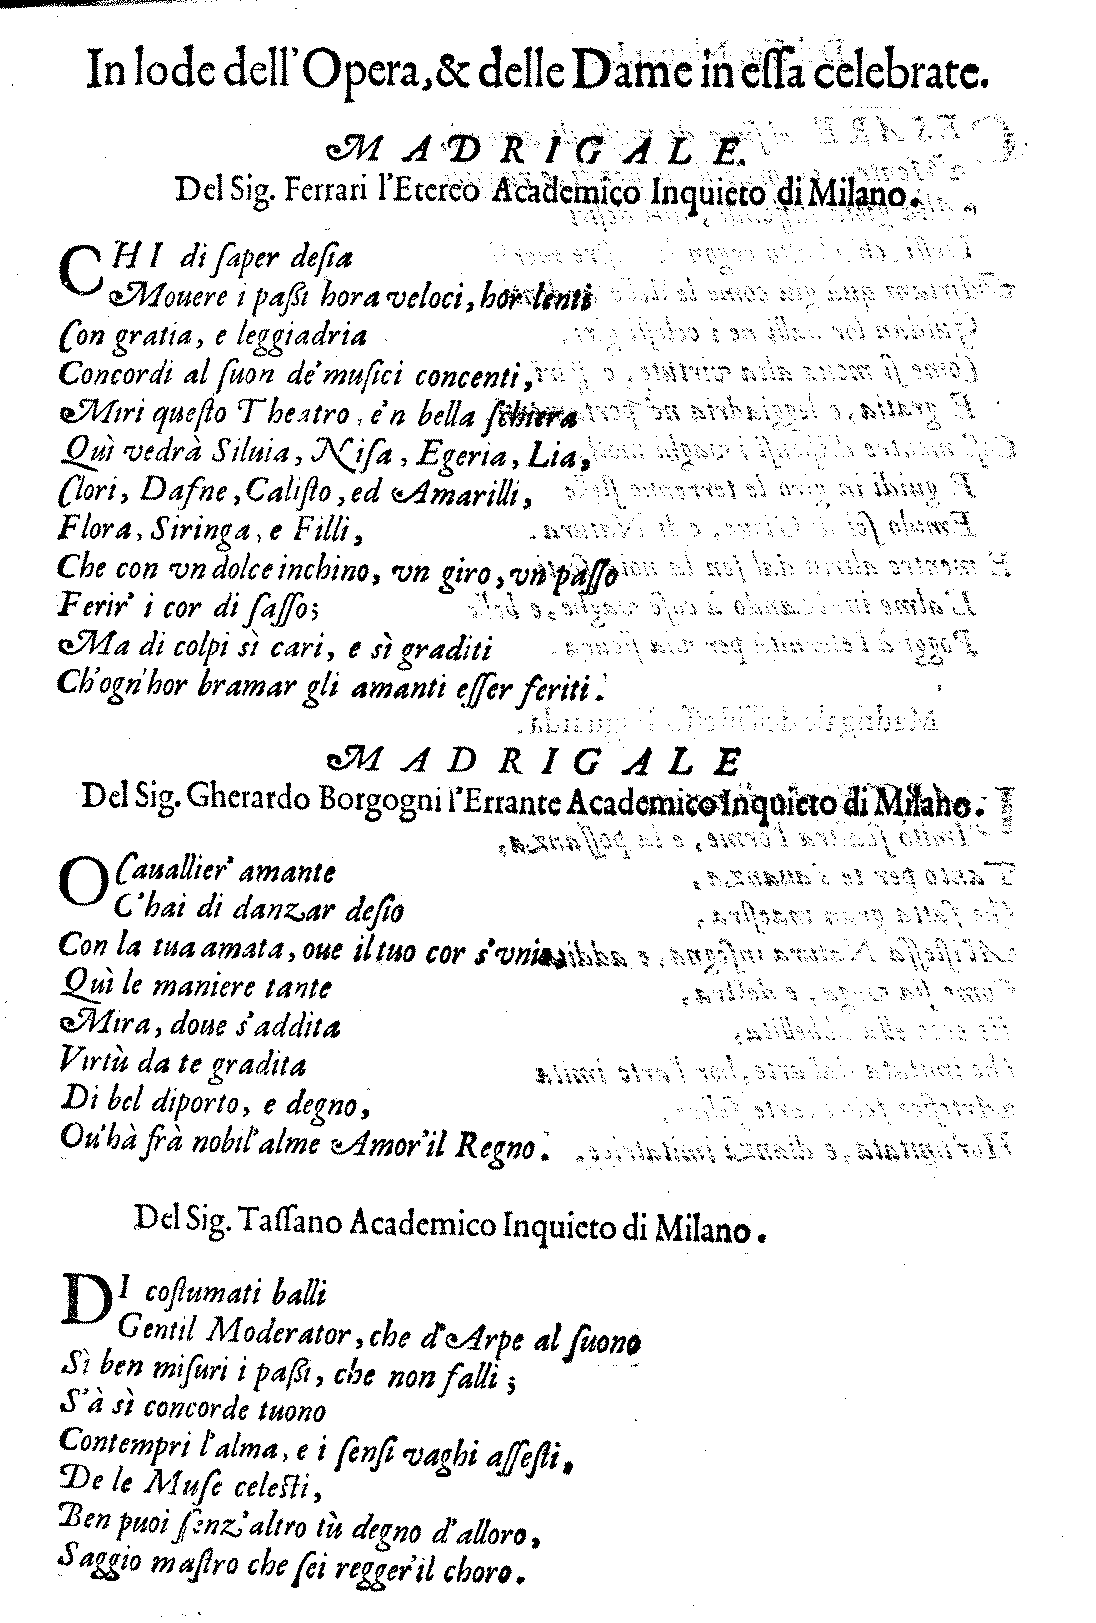 In lode dell'Opera, & delle Dame in eſſa celebrate.
MADRIGALE.
Del Sig. Ferrari l'Etereo Academico Inquieto di Milano.
CHI di ſaper deſia
Mouere i paßi hora veloci, hor lenti
Con gratia, e leggiadria
Concordi al ſuon de' muſici concenti,
Miri queſto Theatro, e'n bella ſchiera
Quì vedrà Siluia, Niſa, Egeria, Lia,
Clori, Dafne, Caliſto, ed Amarilli,
Flora, Siringa, e Filli,
Che con vn dolce inchino, vn giro, vn paſſo
Ferir' i cor di ſaſſo;
Ma di colpi sì cari, e sì graditi
Ch'ogn'hor bramar gli amanti eſſer feriti.
MADRIGALE
Del Sig. Gherardo Borgogni l'Errante Academico Inquieto di Milano.
O Cauallier' amante
C'hai di danzar deſio
Con la tua amata, oue il tuo cor s'vnio,
Quì le maniere tante
Mira, doue s'addita
Virtù da te gradita
Di bel diporto, e degno,
Ou'hà frà nobil'alme Amor'il Regno.
Del Sig. Taſſano Academico Inquieto di Milano.
DI coſtumati balli
Gentil Moderator, che d'Arpe al ſuono
Sì ben miſuri i paßi, che non falli;
S'à sì concorde tuono
Contempri l'alma, e i ſenſi vaghi aſſeſti,
De le Muſe celeſti,
Ben puoi ſenz'altro tù degno d'alloro,
Saggio maſtro che ſei regger'il choro.